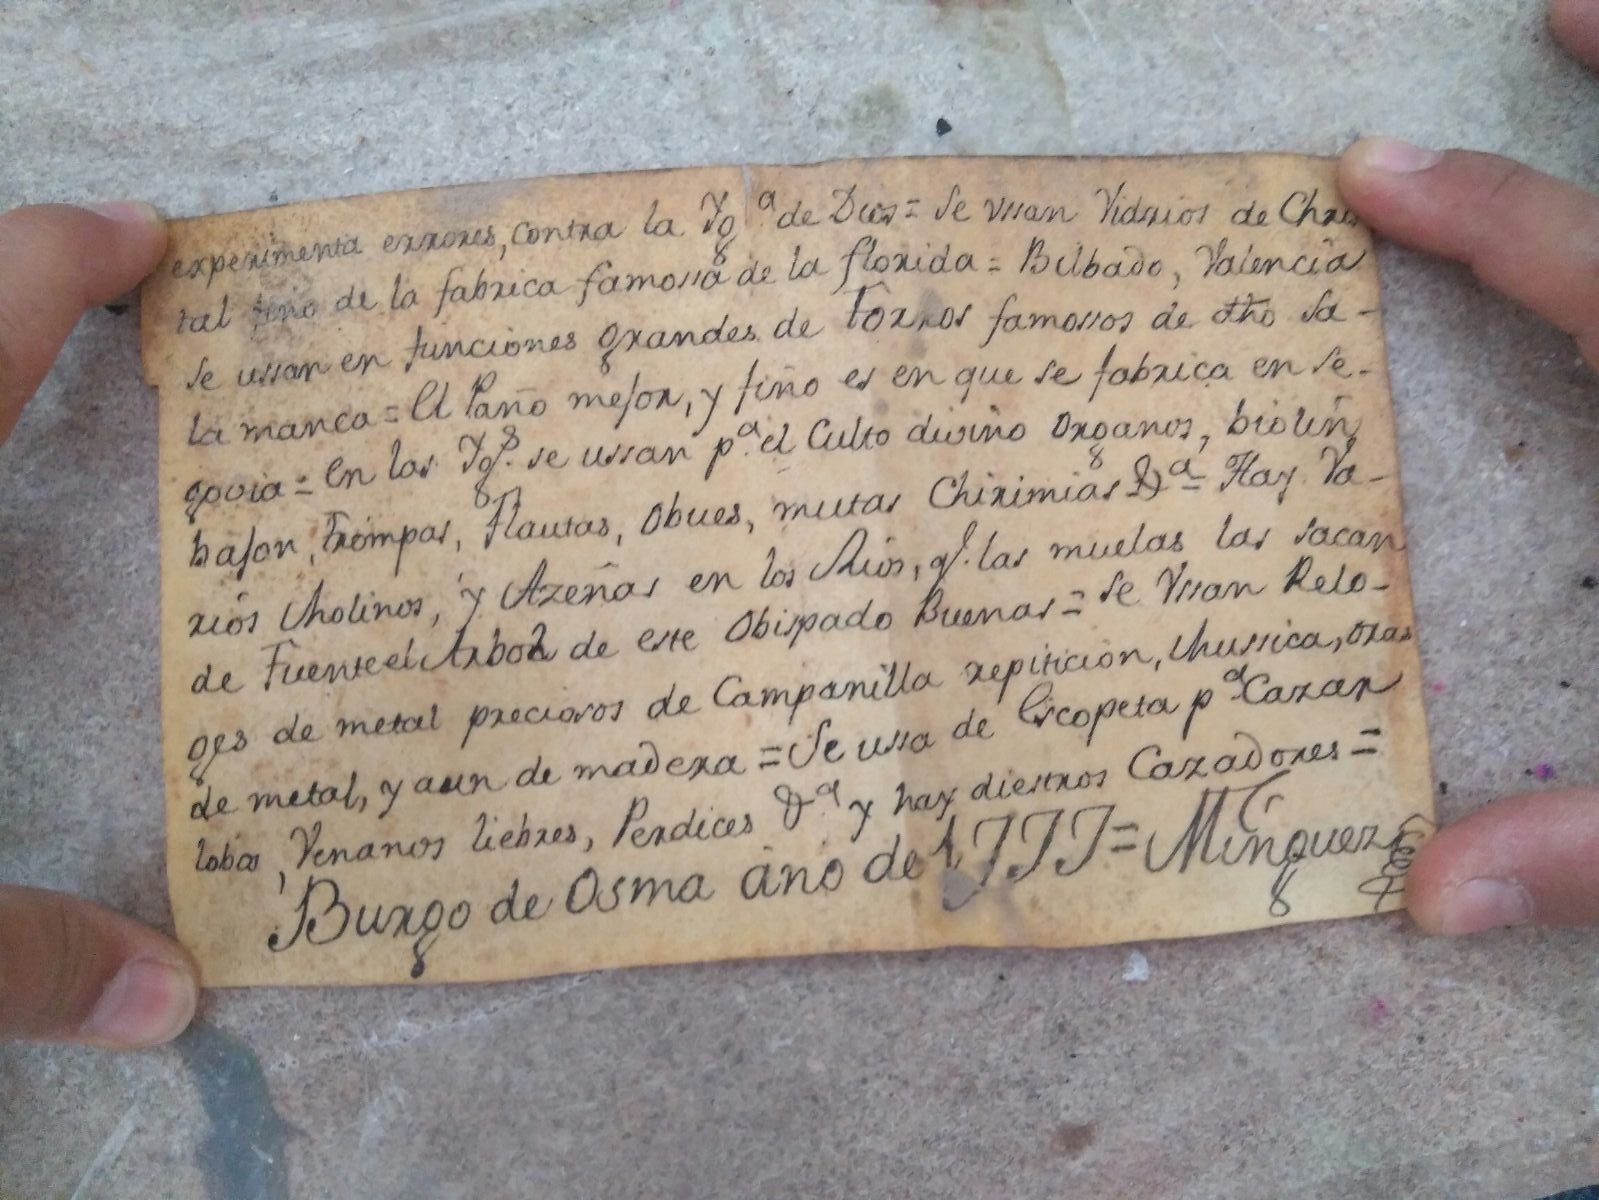 experimenta errores, contra la Yg.ª de Dios = Se ussan Vidrios de Chris
tal fino de la fabrica famossa de la florida = Bilbado, Valencia
se ussan en funciones grandes de Torros famossos de dho Sa-
lamanca = El Paño mejor, y fiño es en que se fabrica en Se-
govia = En las Yg.s se ussan p.ª el Culto diviño Organos, biolin,
bajon, Trompas, Flautas, Obues, muttas Chirimias &ª = Hay Va-
rios Molinos, y Azeñas en los Rios, q.e las muelas las sacan
de Fuente el Arbol de este Obispado Buenas = se Vssan Relo-
ges de metal preciosos de Campanilla repiticion, Mussica, oras
de metal, y aun de madera = Se ussa de Escopeta pª Cazar
lobos, Venanos liebres, Perdices &ª y hay diestros Cazadores =
Burgo de Osma año de 1,777 = Minguez